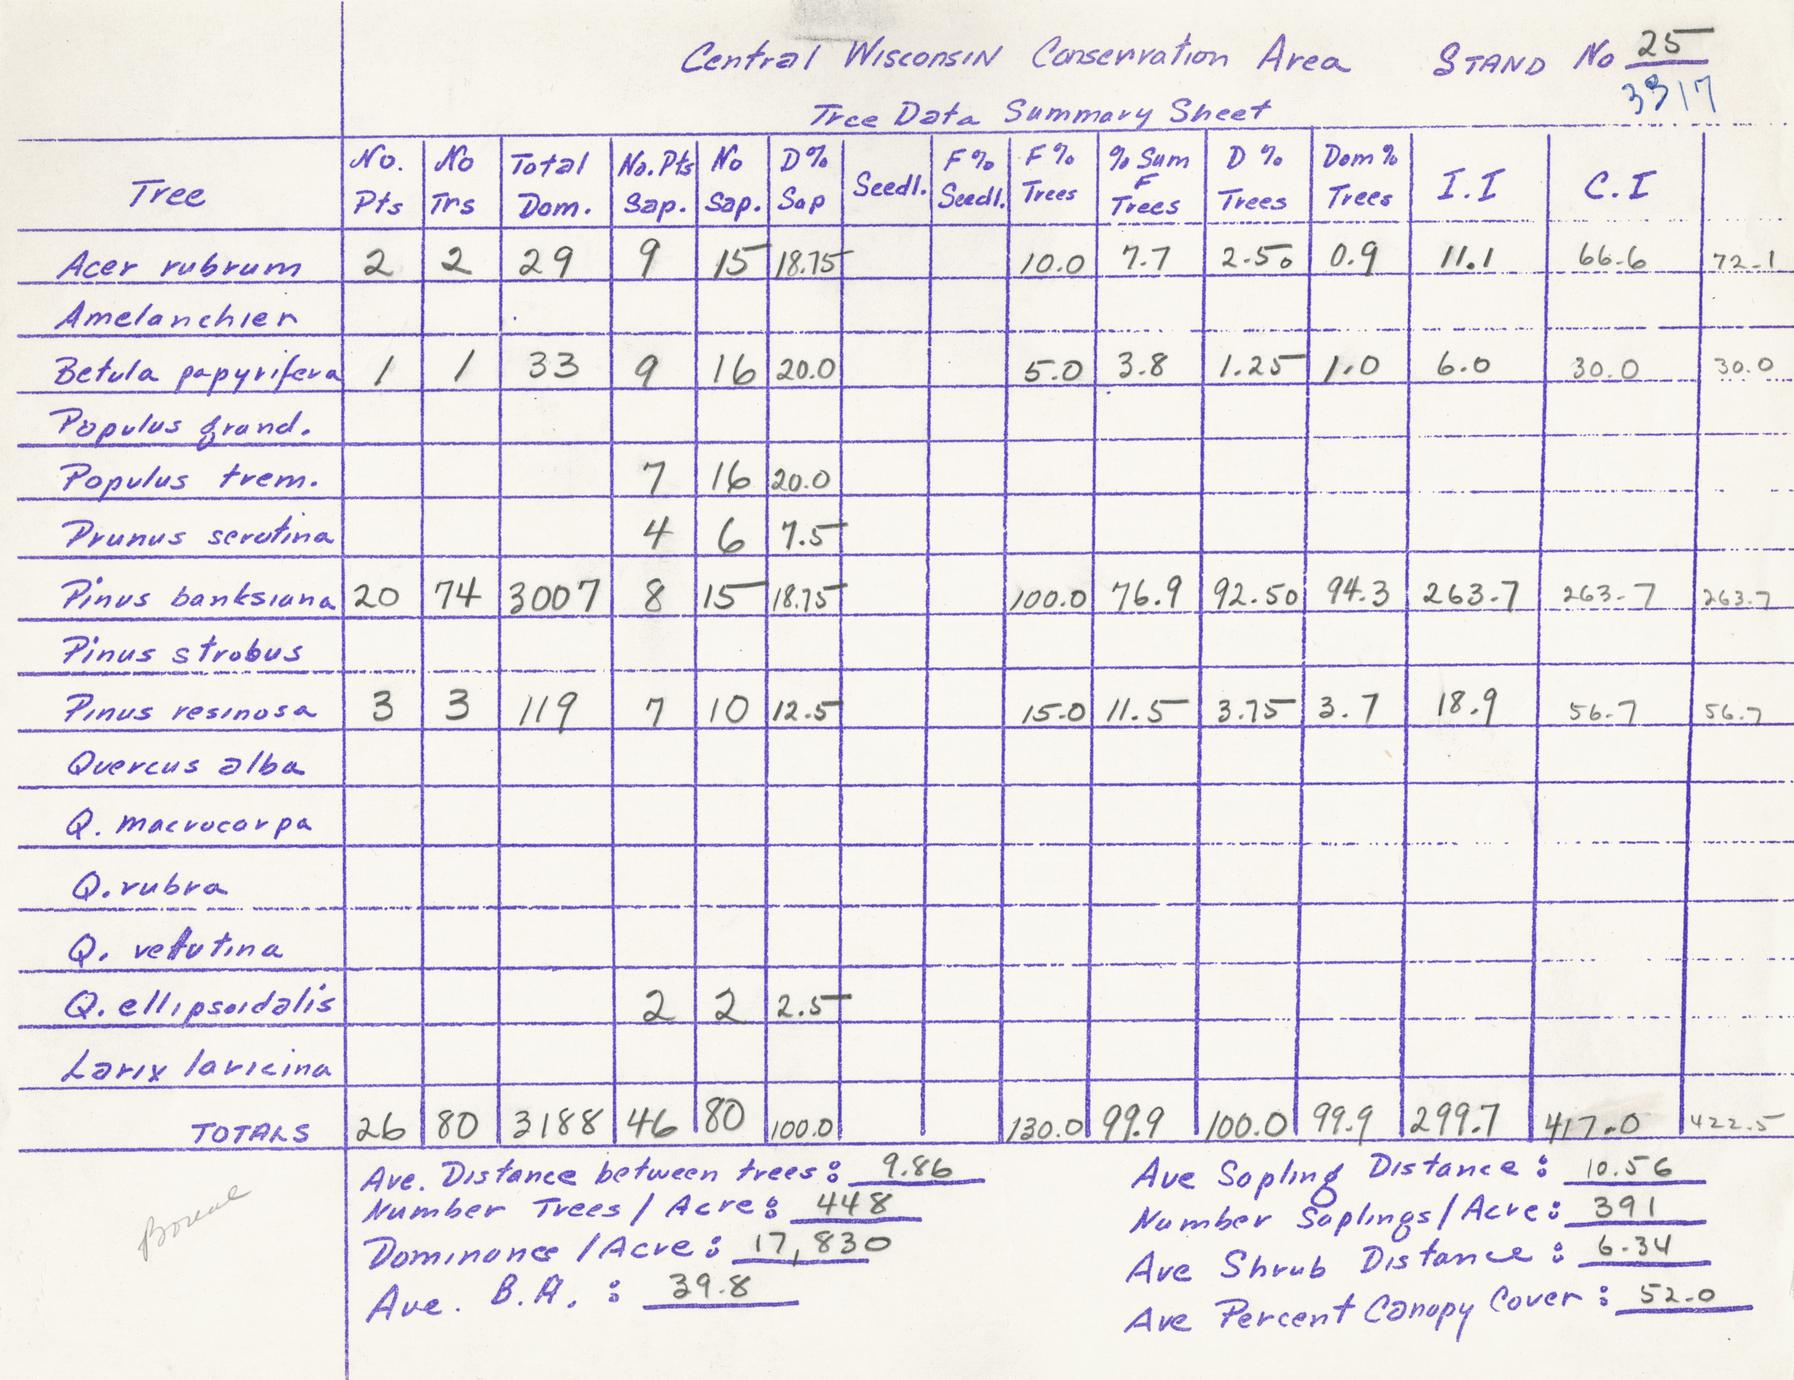 Central Wisconsin Conservation Area STAND No 25
3317
Tree Data Summary Sheet
Tree No. Pts No Trs Total Dom. No. Pts Sap. No Sap. D% Sap Seedl. F% Seedl. F% Trees % Sum F Trees D % Trees Dom % Trees I.I C.I
Acer rubrum 2 2 29 9 15 18.75 10.0 7.7 2.50 0.9 11.1 66.6 72.1
Amelanchier
Betula papyrifera 1 1 33 9 16 20.0 5.0 3.8 1.25 1.0 6.0 30.0 30.0
Populus grand.
Populus trem. 7 16 20.0
Prunus serotina 4 6 7.5
Pinus banksiana 20 74 3007 8 15 18.75 100.0 76.9 92.50 94.3 263.7 263.7 263.7
Pinus strobus
Pinus resinosa 3 3 119 7 10 12.5 15.0 11.5 3.75 3.7 18.9 56.7 56.7
Quercus alba
Q. macrocarpa
Q. rubra
Q. velutina
Q. ellipsoidalis 2 2 2.5
Larix laricina
TOTALS 26 80 3188 46 80 100.0 130.0 99.9 100.0 99.9 299.7 417.0 422.5
Ave. Distance between trees: 9.86
Number Trees / Acre: 448
Dominance / Acre: 17,830
Ave. B.A. : 39.8
Ave Sapling Distance: 10.56
Number Saplings / Acre: 391
Ave Shrub Distance: 6.34
Ave Percent Canopy Cover: 52.0